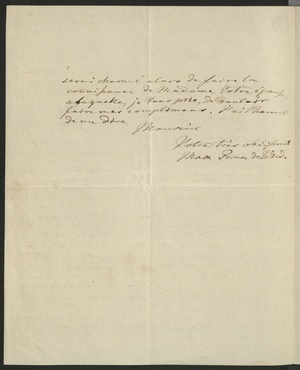 serai charmé alors de faire la
connaissance de Madame Votre épouse,
à laquelle, je Vous prie, de vouloir
faire mes complimens. J'ai l'honneur
de me dire
Monsieur
Votre très obéissant
Max Prince de Wied.